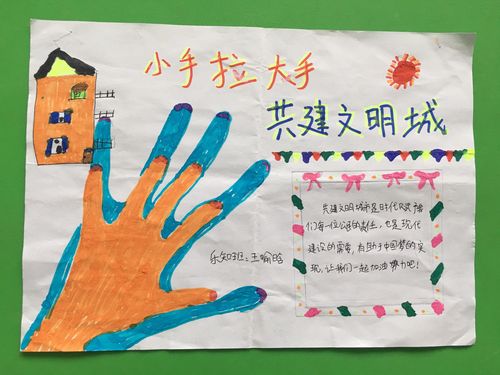 小手拉大手
共建文明城
共建文明城市是时代赋予
们每一位公民的责任，也是现代
建设的需要，有助于中国梦的实
现，让我们一起加油努力吧！
乐知班：王喻晗